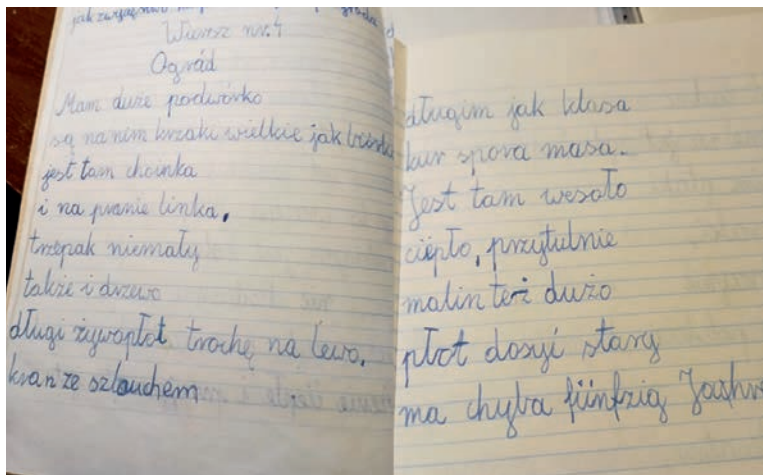 Wiersz nr. 4
Ogród
Mam duże podwórko
są na nim krzaki wielkie jak
jest tam choinka
i na pranie linka,
trzepak niemały
także i drzewo
długi żywopłot trochę na lewo,
kran ze szlauchem
długim jak klasa
kur spora masa.
Jest tam wesoło
ciepło, przytulnie
malin też dużo
płot dosyć stary
ma chyba fünfzig